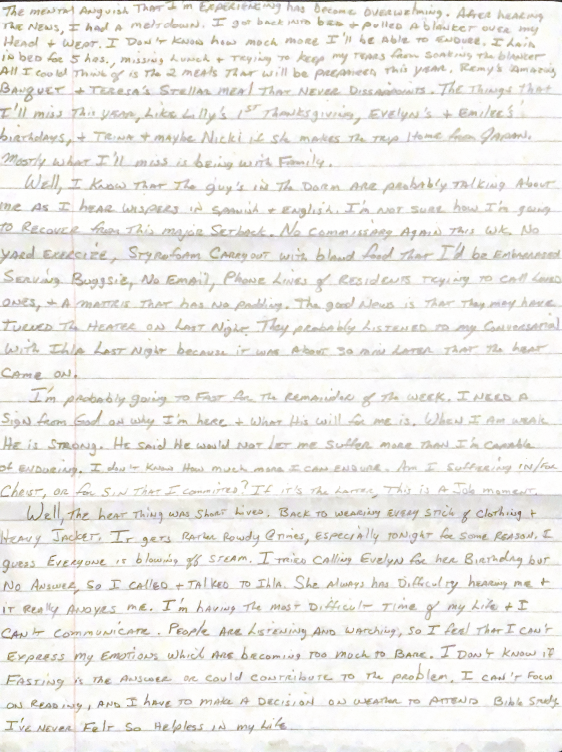 The mental Anguish That I'm EXPERIENCING has become overwelming. After hearing
The News, I had a meltdown. I got back into bed + pulled A blanket over my
Head + Wept. I Don't know how much more I'll be Able to Endure. I lain
in bed for 5 hrs., missing Lunch + Trying to keep my tears from soaking the blanket
All I could Think of is the 2 meals That will be prepared This year, Remy's Amazing
Banquet + Teresa's Stellar meal That Never Dissapoints. The Things that
I'll miss This year, Like Lilly's 1ST Thanksgiving, Evelyn's + Emilee's
birthdays, + Trina + maybe Nicki if she makes the trip Home from Japan.
Mostly what I'll miss is being with Family.
Well, I Know That The guy's in The Dorm Are probably Talking About
me As I hear wispers in Spanish + English. I'm not sure how I'm going
to Recover from This major Setback. No Commissary Again This Wk, No
yard Exercize, Styrofoam Carryout with bland food That I'd be Embarrased
Serving Buggsie, No Email, Phone Lines of Residents Trying to call Loved
ones, + A matris That has No padding. The good News is That They may have
Turned The Heater on Last Night. They probably Listened to my Conversation
With Ihla Last Night because it was About 30 min Later That the heat
Came on.
I'm probably going to Fast for the Remainder of the week. I need A
Sign from God on why I'm here + What His will for me is. When I Am weak
He is Strong. He said He would not let me suffer more Than I'm capable
of enduring. I don't know How much more I can endure. Am I suffering in/for
Christ, or for Sin That I committed? If it's the Latter, This is A Job moment.
Well, The heat Thing was short Lived. Back to wearing every stick of Clothing +
Heavy Jacket. It gets Rather Rowdy @Times, Especially tonight for some Reason. I
guess Everyone is blowing off steam. I Tried Calling Evelyn for her Birthday but
No Answer, So I called + Talked to Ihla. She Always has Difficulty hearing me +
it Really Annoyes me. I'm having the most Difficult Time of my Life + I
Can't Communicate. People Are Listening And watching, so I feel That I can't
Express my Emotions which Are becoming too much to Bare. I Don't Know if
Fasting is the Answer or could contribute to the problem. I can't focus
on Reading, and I have to make A Decision on weather to Attend Bible Study.
I've Never Felt So Helpless in my Life.